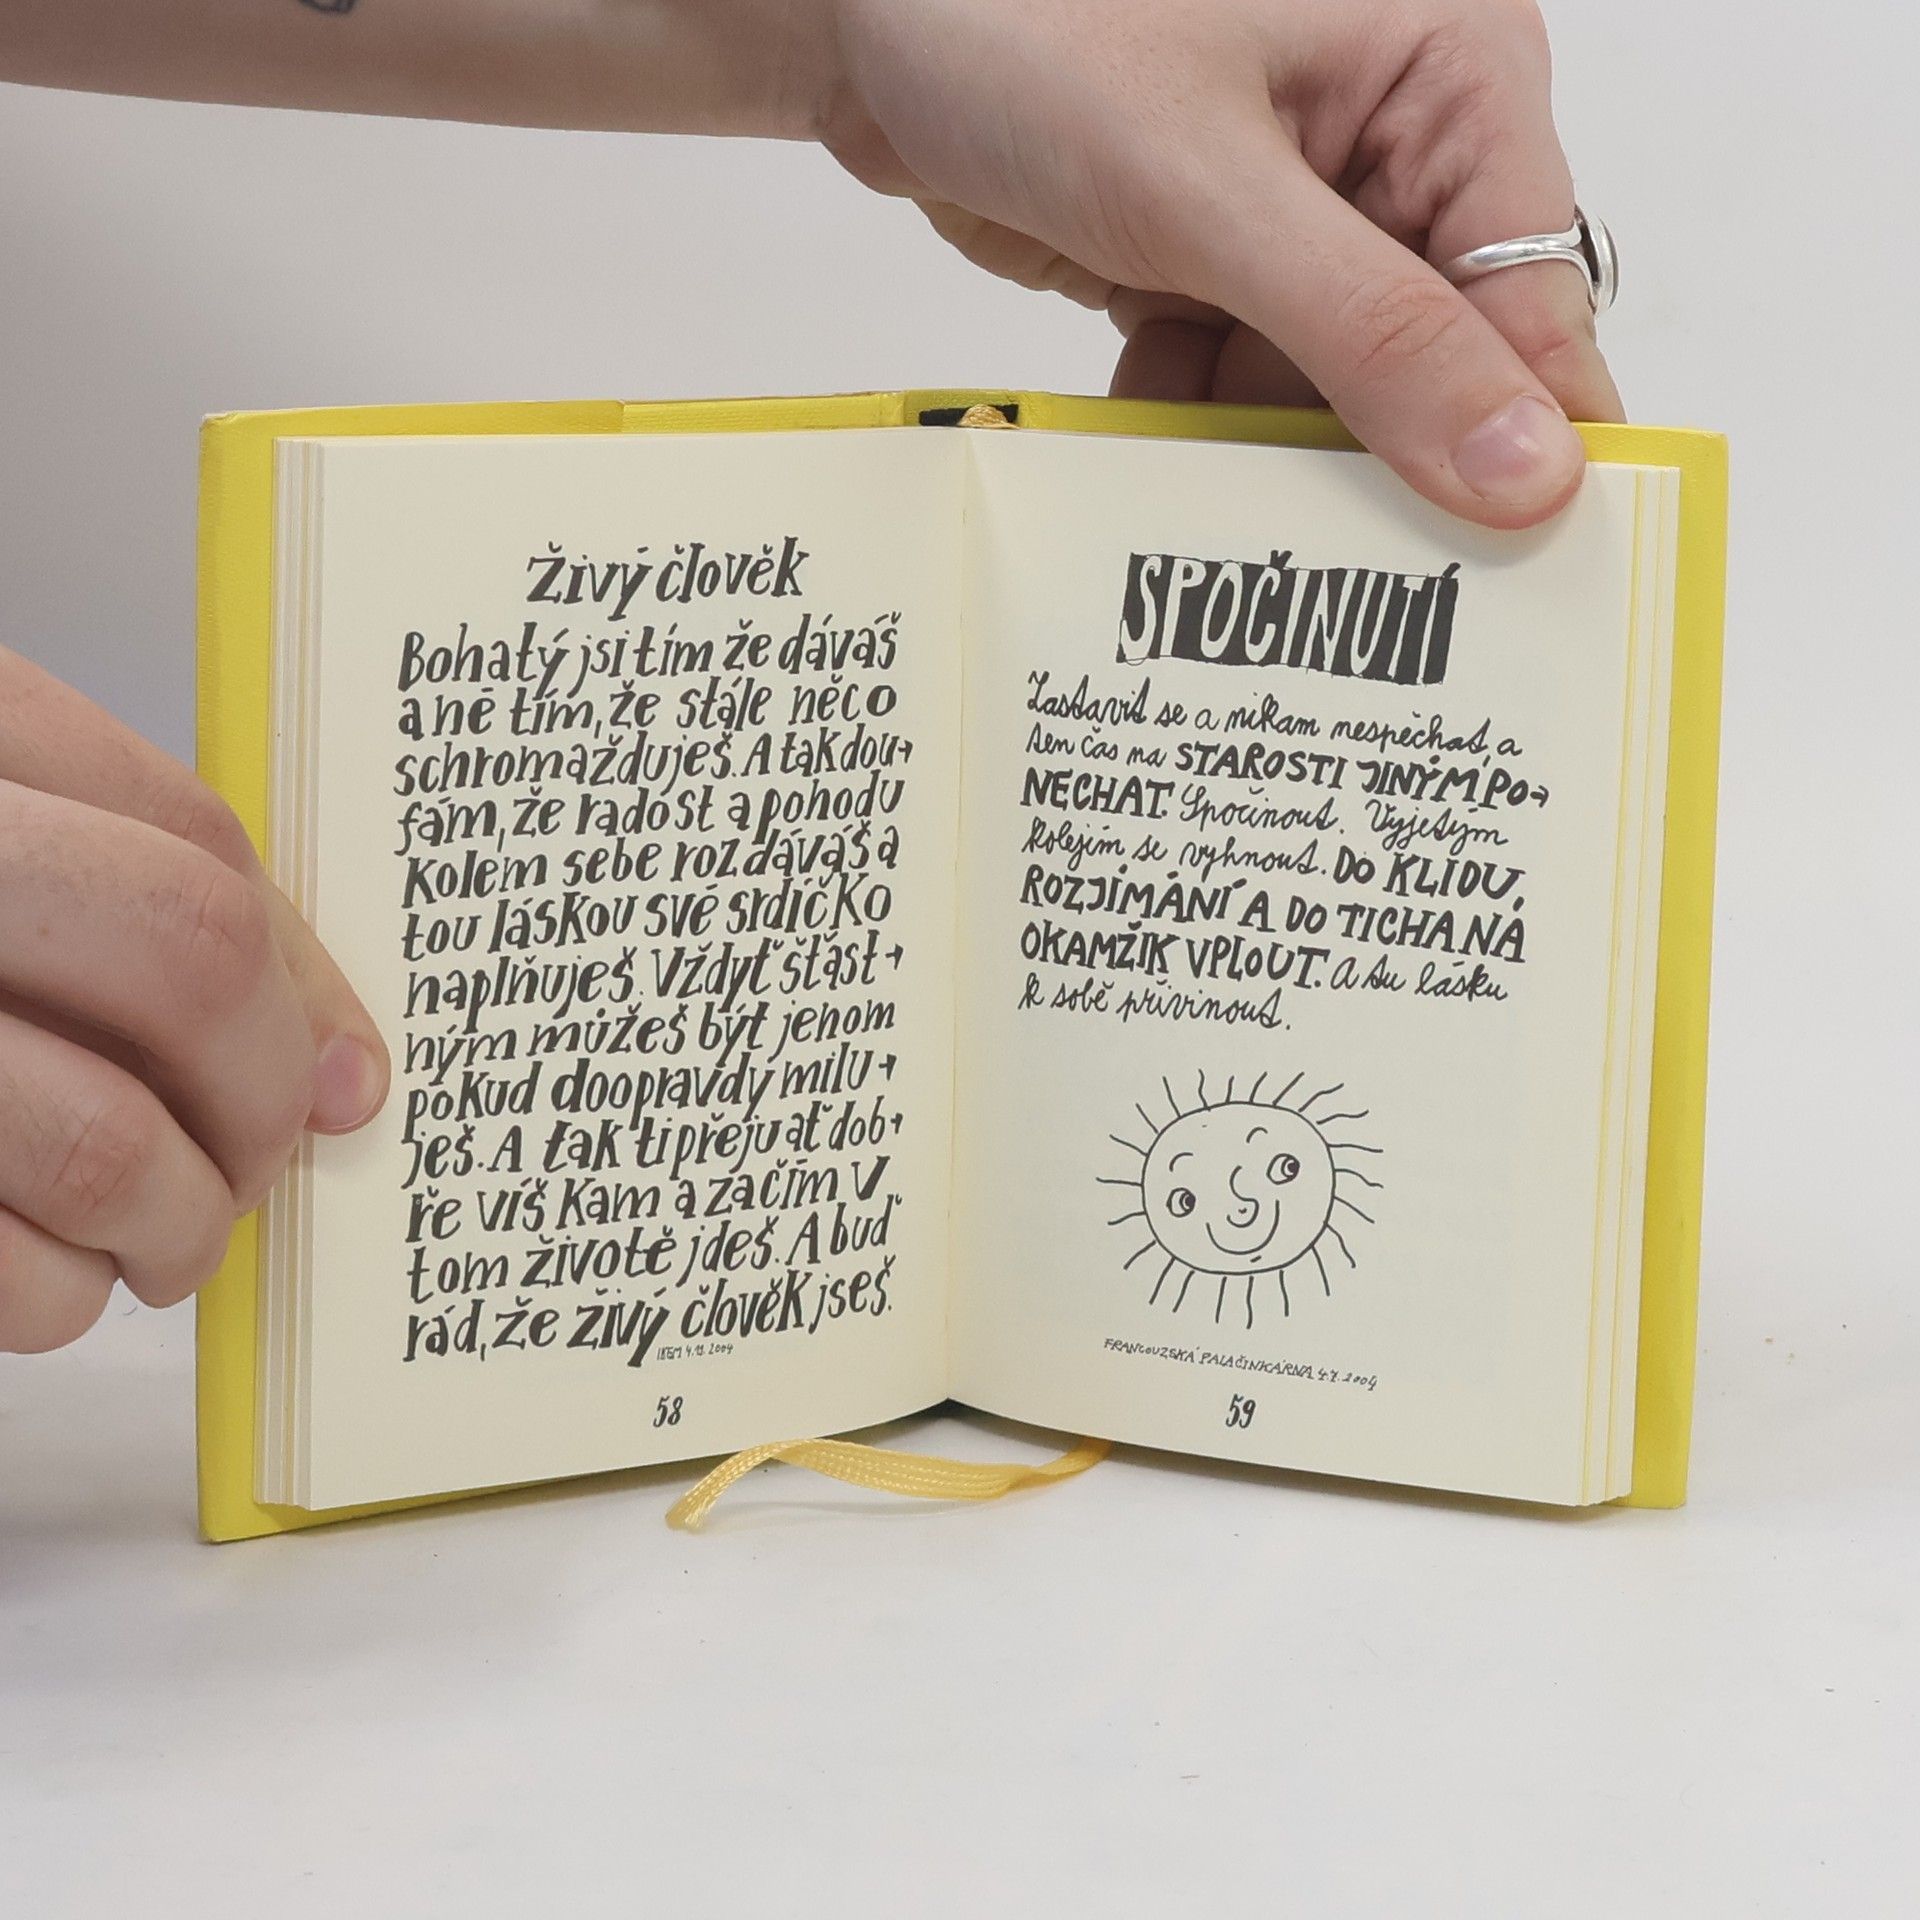 Živý člověk
Bohatý jsi tím že dáváš
a ne tím, že stále něco
schromažďuješ. A tak dou→
fám, že radost a pohodu
kolem sebe rozdáváš a
tou láskou své srdíčko
naplňuješ. Vždyť šťast→
ným můžeš být jenom
pokud doopravdy milu→
ješ. A tak ti přeju ať dob→
ře víš kam a za čím v
tom životě jdeš. A buď
rád, že živý člověk jseš.
IKEM 4.11.2004
58
SPOČINUTÍ
Zastavit se a nikam nespěchat, a
ten čas na STAROSTI JINÝM PO→
NECHAT. Spočinout. Vyjetým
kolejím se vyhnout. DO KLIDU,
ROZJÍMÁNÍ A DO TICHA NA
OKAMŽIK VPLOUT. A tu lásku
k sobě přivinout.
FRANCOUZSKÁ PALAČINKÁRNA 4.7.2004
59